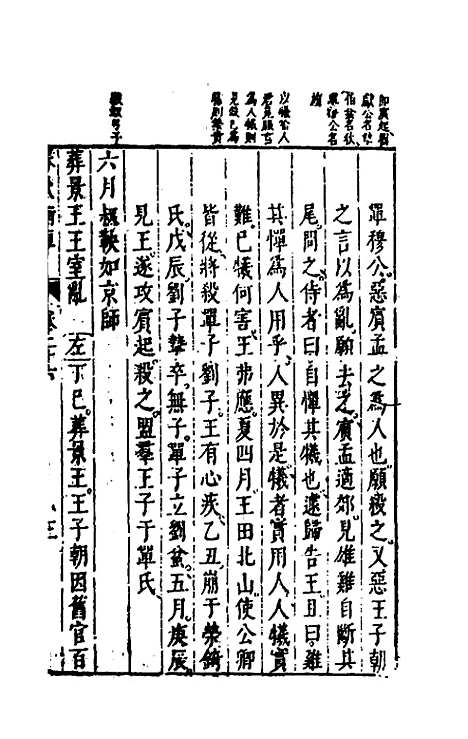 即賓起劉
獻公名摯
伯蚠名狄
單穆公名
旗
以犧喻人
人犧則
見寵已爲
叔弓子
單穆公惡賓孟之爲人也願殺之又惡王子朝
之言以爲亂願去之賓孟適郊見雄雞自斷其
尾問之侍者曰自憚其犧也遽歸告王且曰雞
其憚爲人用乎人異於是犧者實用人人犧實
難已犧何害王弗應夏四月王田北山使公卿
皆從將殺單子劉子王有心疾乙丑崩于榮錡
氏戊辰劉子摯卒無子單子立劉蚠五月庚辰
見王遂攻賓起殺之盟羣王子于單氏
六月叔鞅如京師
葬景王王室亂 左 丁巳葬景王王子朝因舊官百
卷二十六